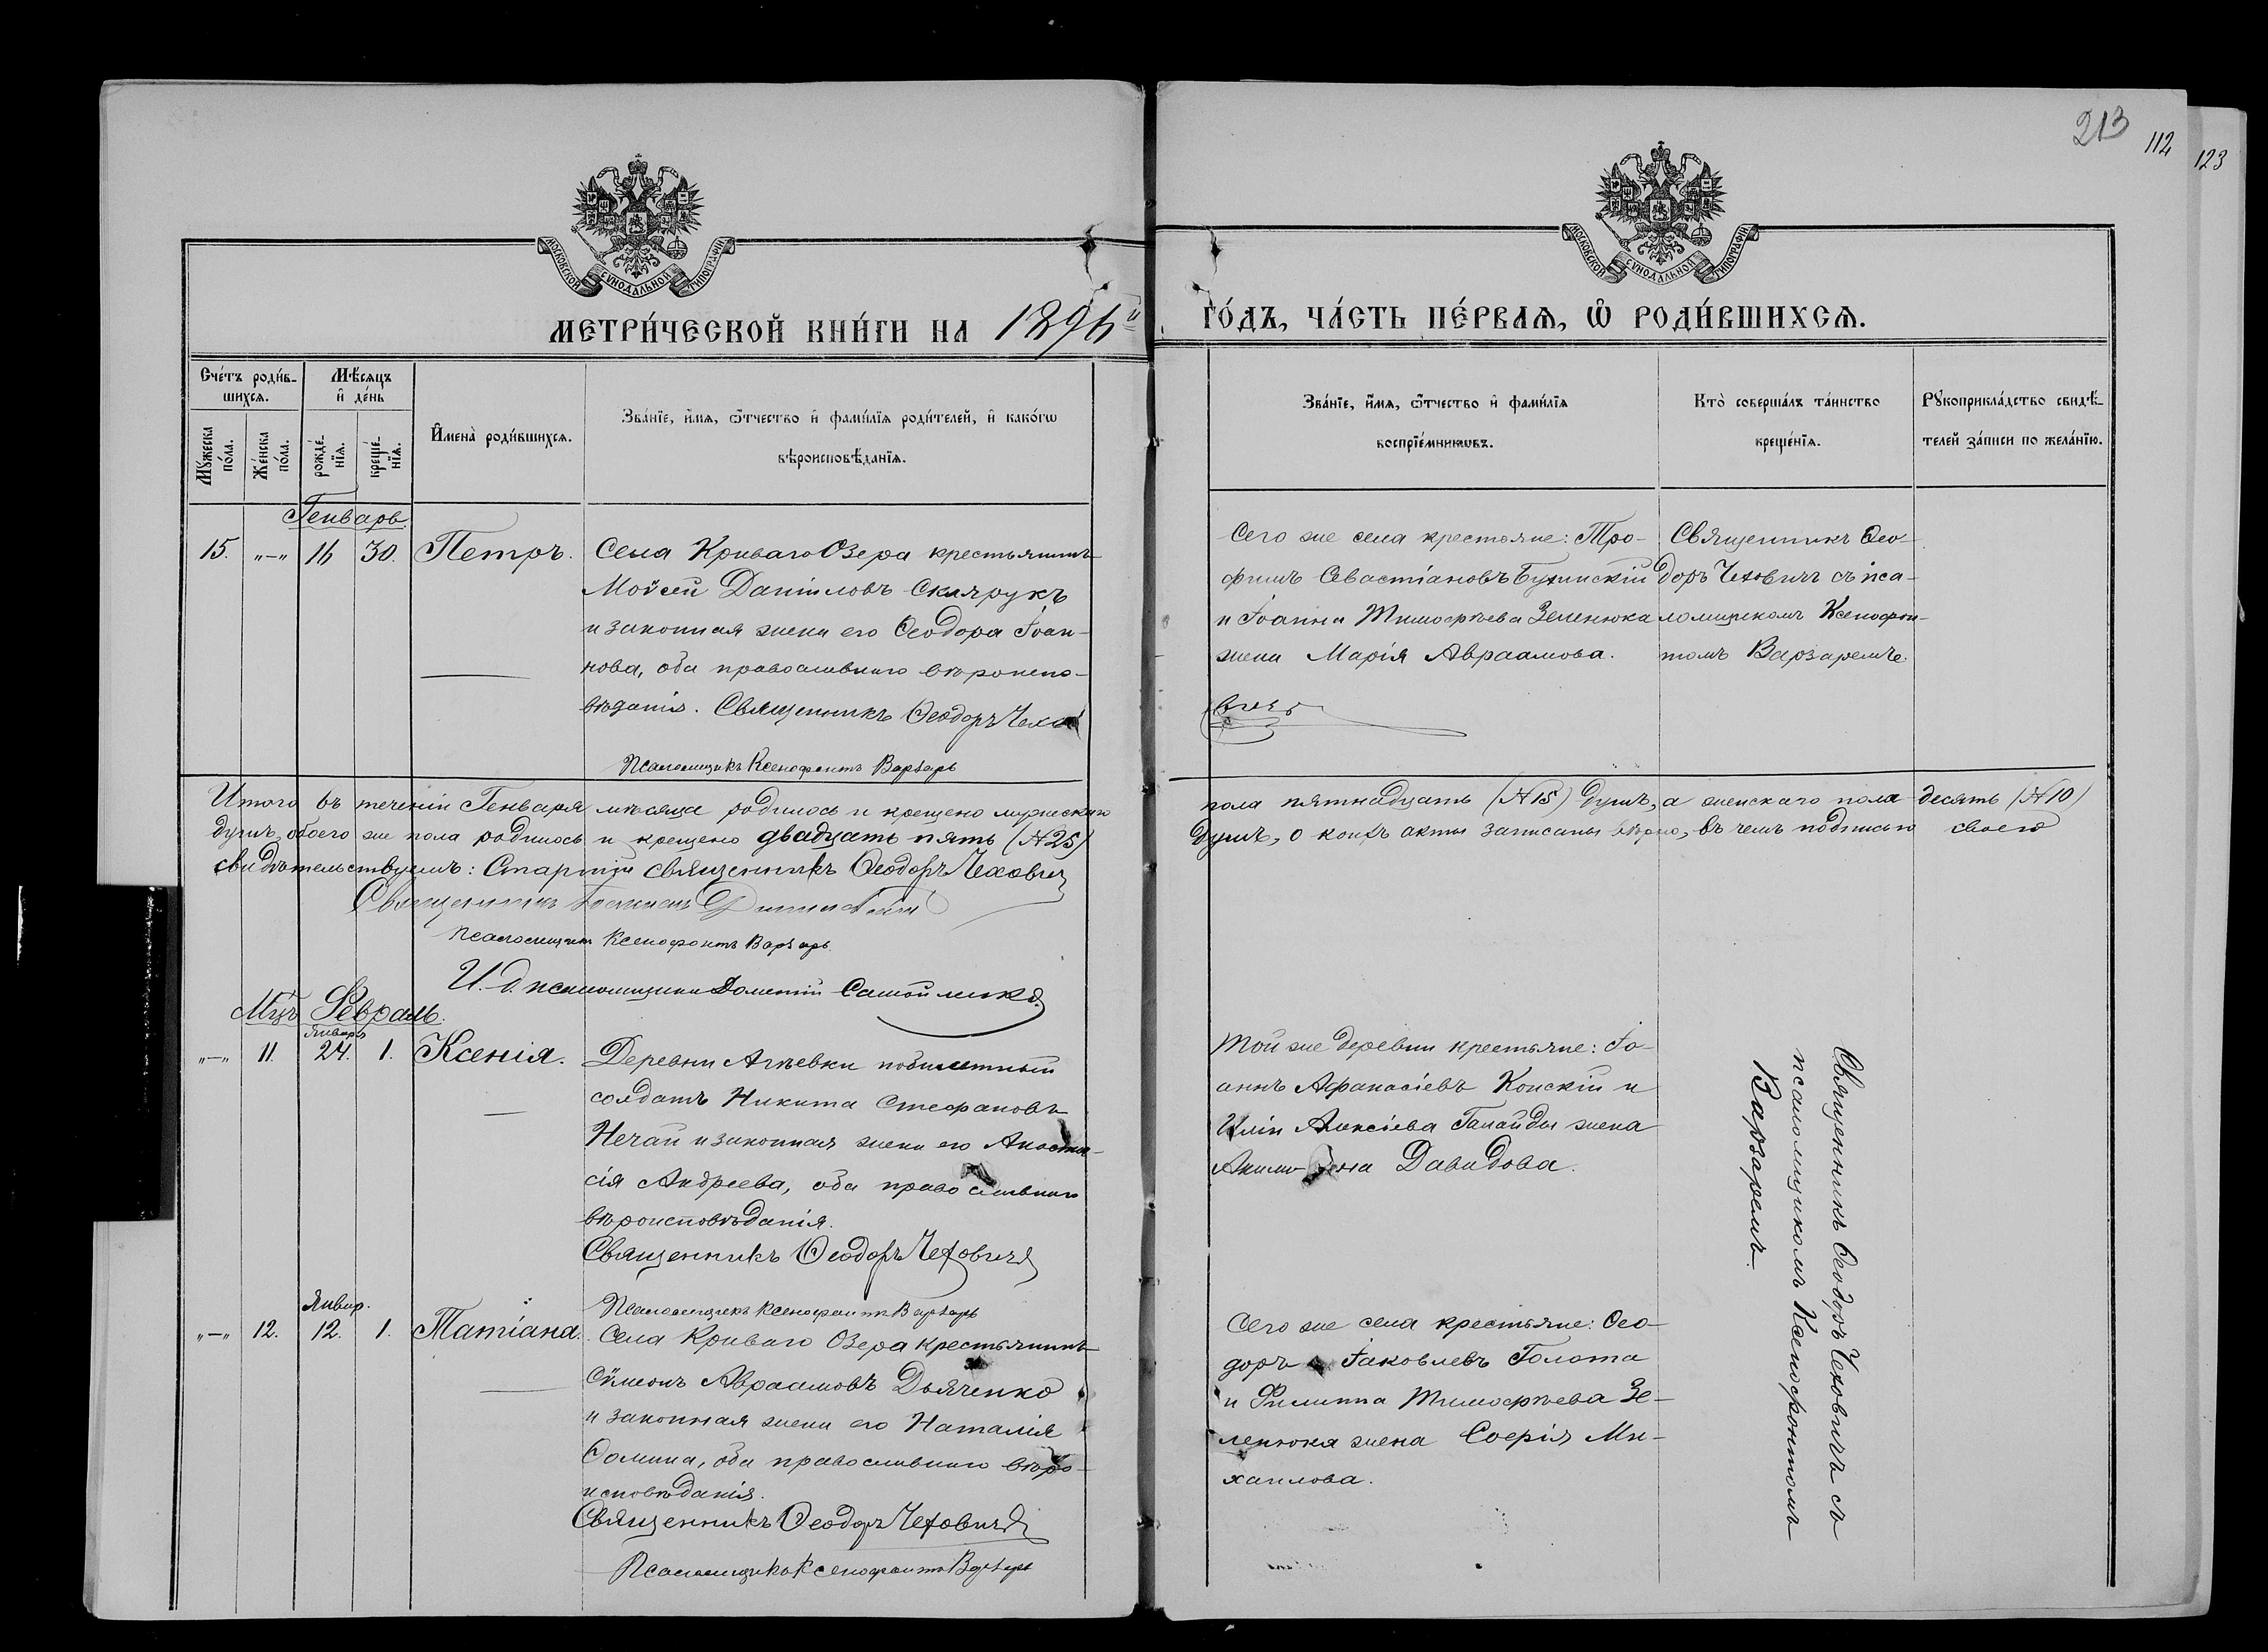 213
112
123
МОСКОВСКОЙ СУНОДАЛЬНОЙ ТИПОГРАФІИ
МОСКОВСКОЙ СУНОДАЛЬНОЙ ТИПОГРАФІИ
МЕТРИ́ЧЕСКОЙ КНИ́ГИ НА 1896й
ГО́ДЪ, ЧА́СТЬ ПЕ́РВАѦ, Ѡ҆ РОДИ́ВШИХСѦ.
Сче́тъ роди́в-
шихсѧ.
Мѣ́сѧцъ
и҆ де́нь
Мꙋ́жеска
по́ла.
Же́нска
по́ла.
рожде́-
нїѧ.
креще́-
нїѧ.
И҆мена̀ роди́вшихсѧ.
Зва́нїе, и҆́мѧ, ѻ҆́тчество и҆ фами́лїѧ роди́телей, и҆ како́гѡ
вѣроисповѣ́данїѧ.
Зва́нїе, и҆́мѧ, ѻ҆́тчество и҆ фами́лїѧ
воспрїе́мникѡвъ.
Кто̀ соверша́лъ та́инство
креще́нїѧ.
Рꙋкоприкла́дство свидѣ́-
телей за́писи по жела́нїю.
Генварь.
15. „—„ 16 30. Петръ.
Села Криваго Озера крестьянинъ
Моѵсей Даніиловъ Склярукъ
и законная жена его Ѳеодора Іоан-
нова, оба православнаго вѣроиспо-
вѣданія. Священникъ Ѳеодоръ Чехо
вичъ
Псаломщикъ Ксенофонтъ Варзарь
Сего же села крестьяне: Тро-
фимъ Севастіановъ Бужинскій
и Іоанна Тимофѣева Зеленюка
жена Марія Авраамова.
Священникъ Ѳео-
доръ Чеховичъ съ пса-
ломщикомъ Ксенофон-
томъ Варзаремъ.
Итого въ теченіи Генваря мѣсяца родилось и крещено мужескаго пола пятнадцать (№15) душъ, а женскаго пола десять (№10)
душъ, обоего же пола родилось и крещено двадцать пять (№25) душъ, о коихъ акты записаны вѣрно, въ чемъ подписью своею
свидѣтельствуемъ: Старшій священникъ Ѳеодоръ Чеховичъ
Священникъ
Псаломщикъ Ксенофонтъ Варзарь
И. д. псаломщика Дометій Самойленко
Мцъ Февраль.
Января
„—„ 11. 24. 1. Ксенія.
Деревни Агѣевки побилетный
солдатъ Никита Стефановъ
Нечай и законная жена его Анаста-
сія Андреева, оба православнаго
вѣроисповѣданія.
Священникъ Ѳеодоръ Чеховичъ
Псаломщикъ Ксенофонтъ Варзарь
Той же деревни крестьяне: Іо-
аннъ Афанасіевъ Конскій и
Иліи Алексіева Галайды жена
Давидова.
Священникъ Ѳеодоръ Чеховичъ съ
псаломщикомъ Ксенофонтомъ
Варзаремъ.
Январ.
„—„ 12. 12. 1. Татіана.
Села Криваго Озера крестьянинъ
Сѵмеонъ Авраамовъ Дьяченко
и законная жена его Наталія
Ѳомина, оба православнаго вѣро-
исповѣданія.
Священникъ Ѳеодоръ Чеховичъ
Псаломщикъ Ксенофонтъ Варзарь
Сего же села крестьяне: Ѳео-
доръ Іаковлевъ Голота
и Филиппа Тимофѣева Зе-
ленюка жена Софія Ми-
хаилова.